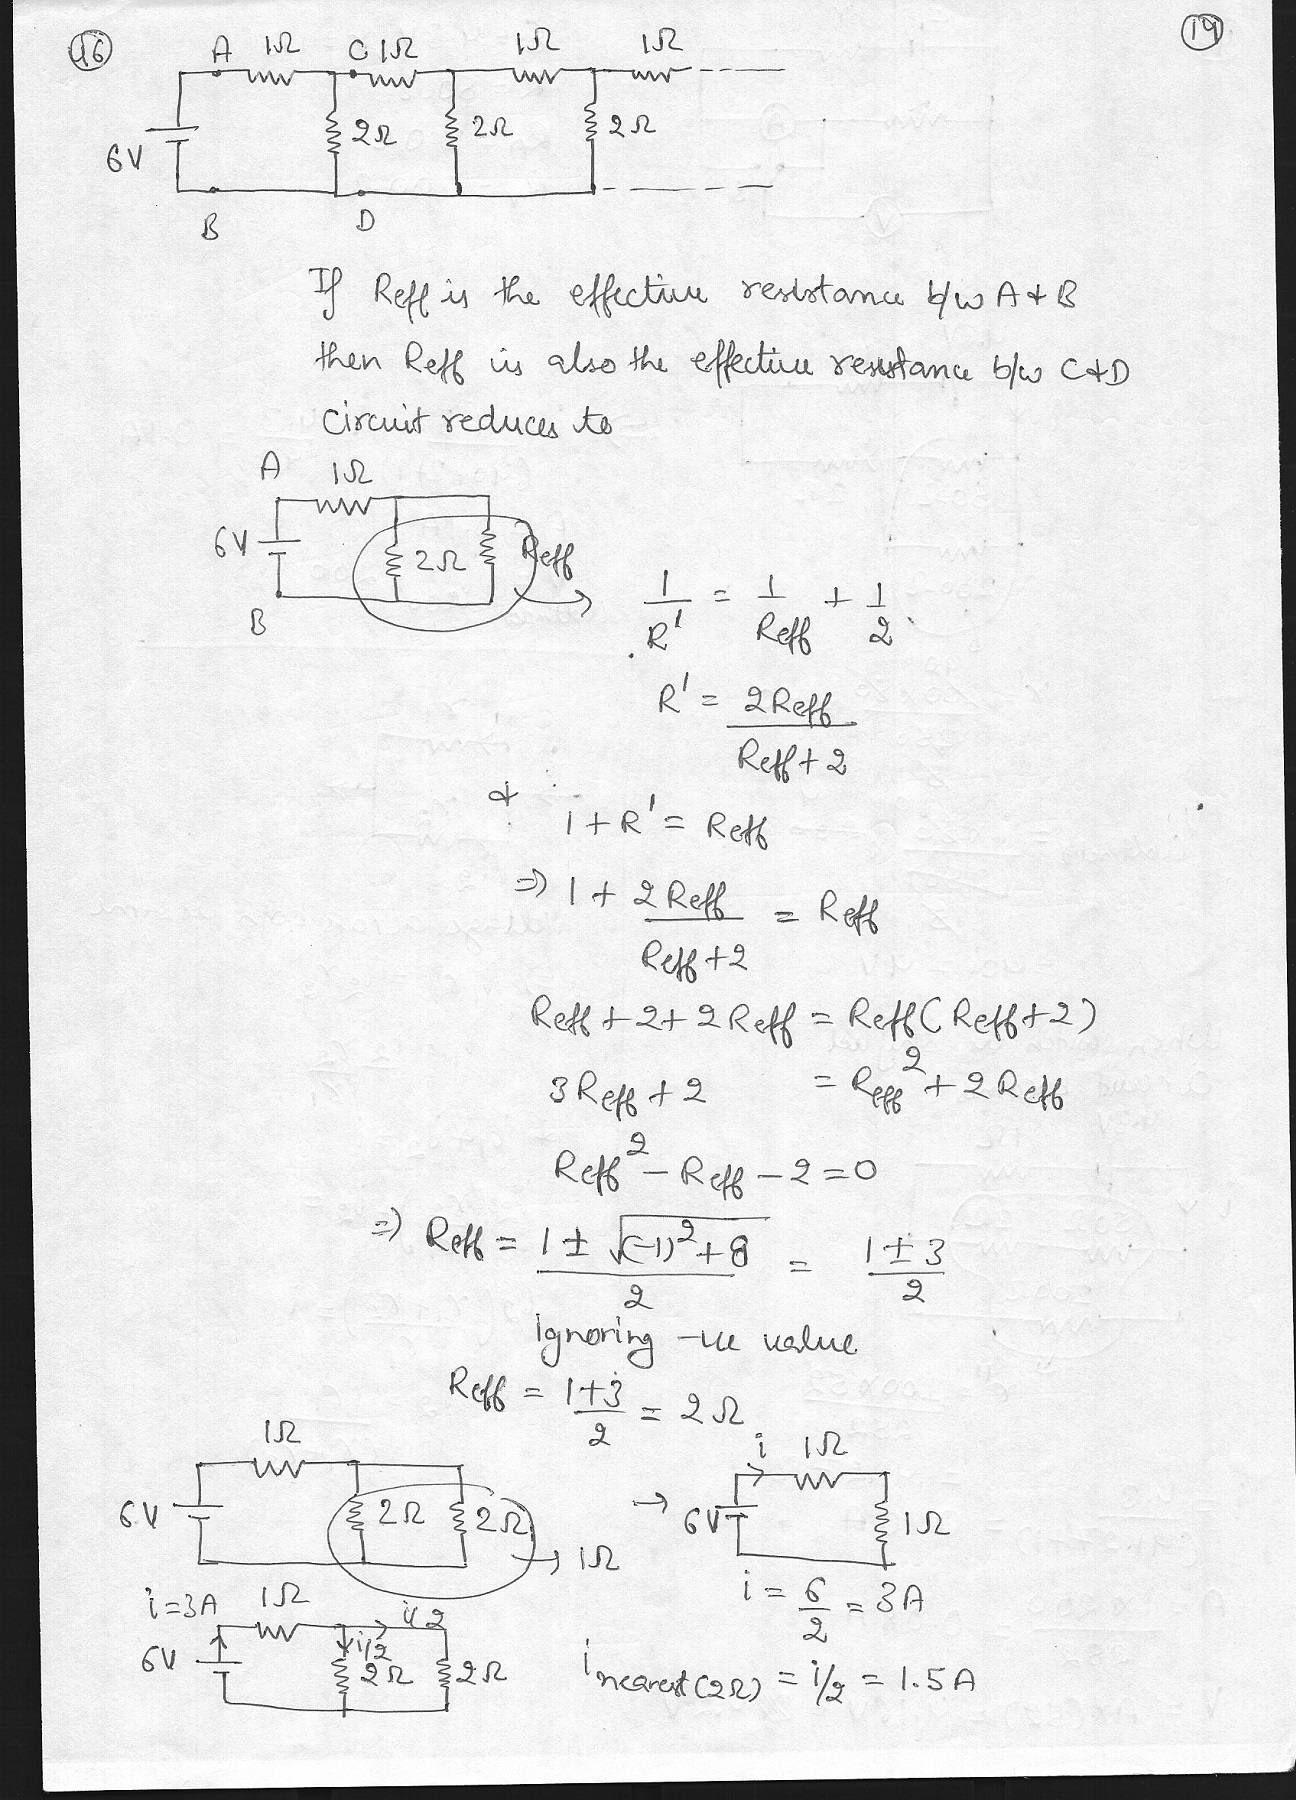 46
14
A 1Ω C 1Ω 1Ω 1Ω
6V 2Ω 2Ω 2Ω
B D
If Reff is the effective resistance b/w A & B
then Reff is also the effective resistance b/w C & D
Circuit reduces to
A 1Ω
6V 2Ω Reff
B
1/R' = 1/Reff + 1/2
R' = 2Reff/(Reff + 2)
& 1 + R' = Reff
⇒ 1 + 2Reff/(Reff + 2) = Reff
Reff + 2 + 2Reff = Reff(Reff + 2)
3Reff + 2 = Reff² + 2Reff
Reff² - Reff - 2 = 0
⇒ Reff = (1 ± √((-1)² + 8))/2 = (1 ± 3)/2
ignoring -ve value
Reff = (1+3)/2 = 2Ω
1Ω
6V 2Ω 2Ω → 1Ω
→ i 1Ω
6V 1Ω
i = 6/2 = 3A
i = 3A 1Ω i/2
6V i/2 2Ω 2Ω
i nearest(2Ω) = i/2 = 1.5A